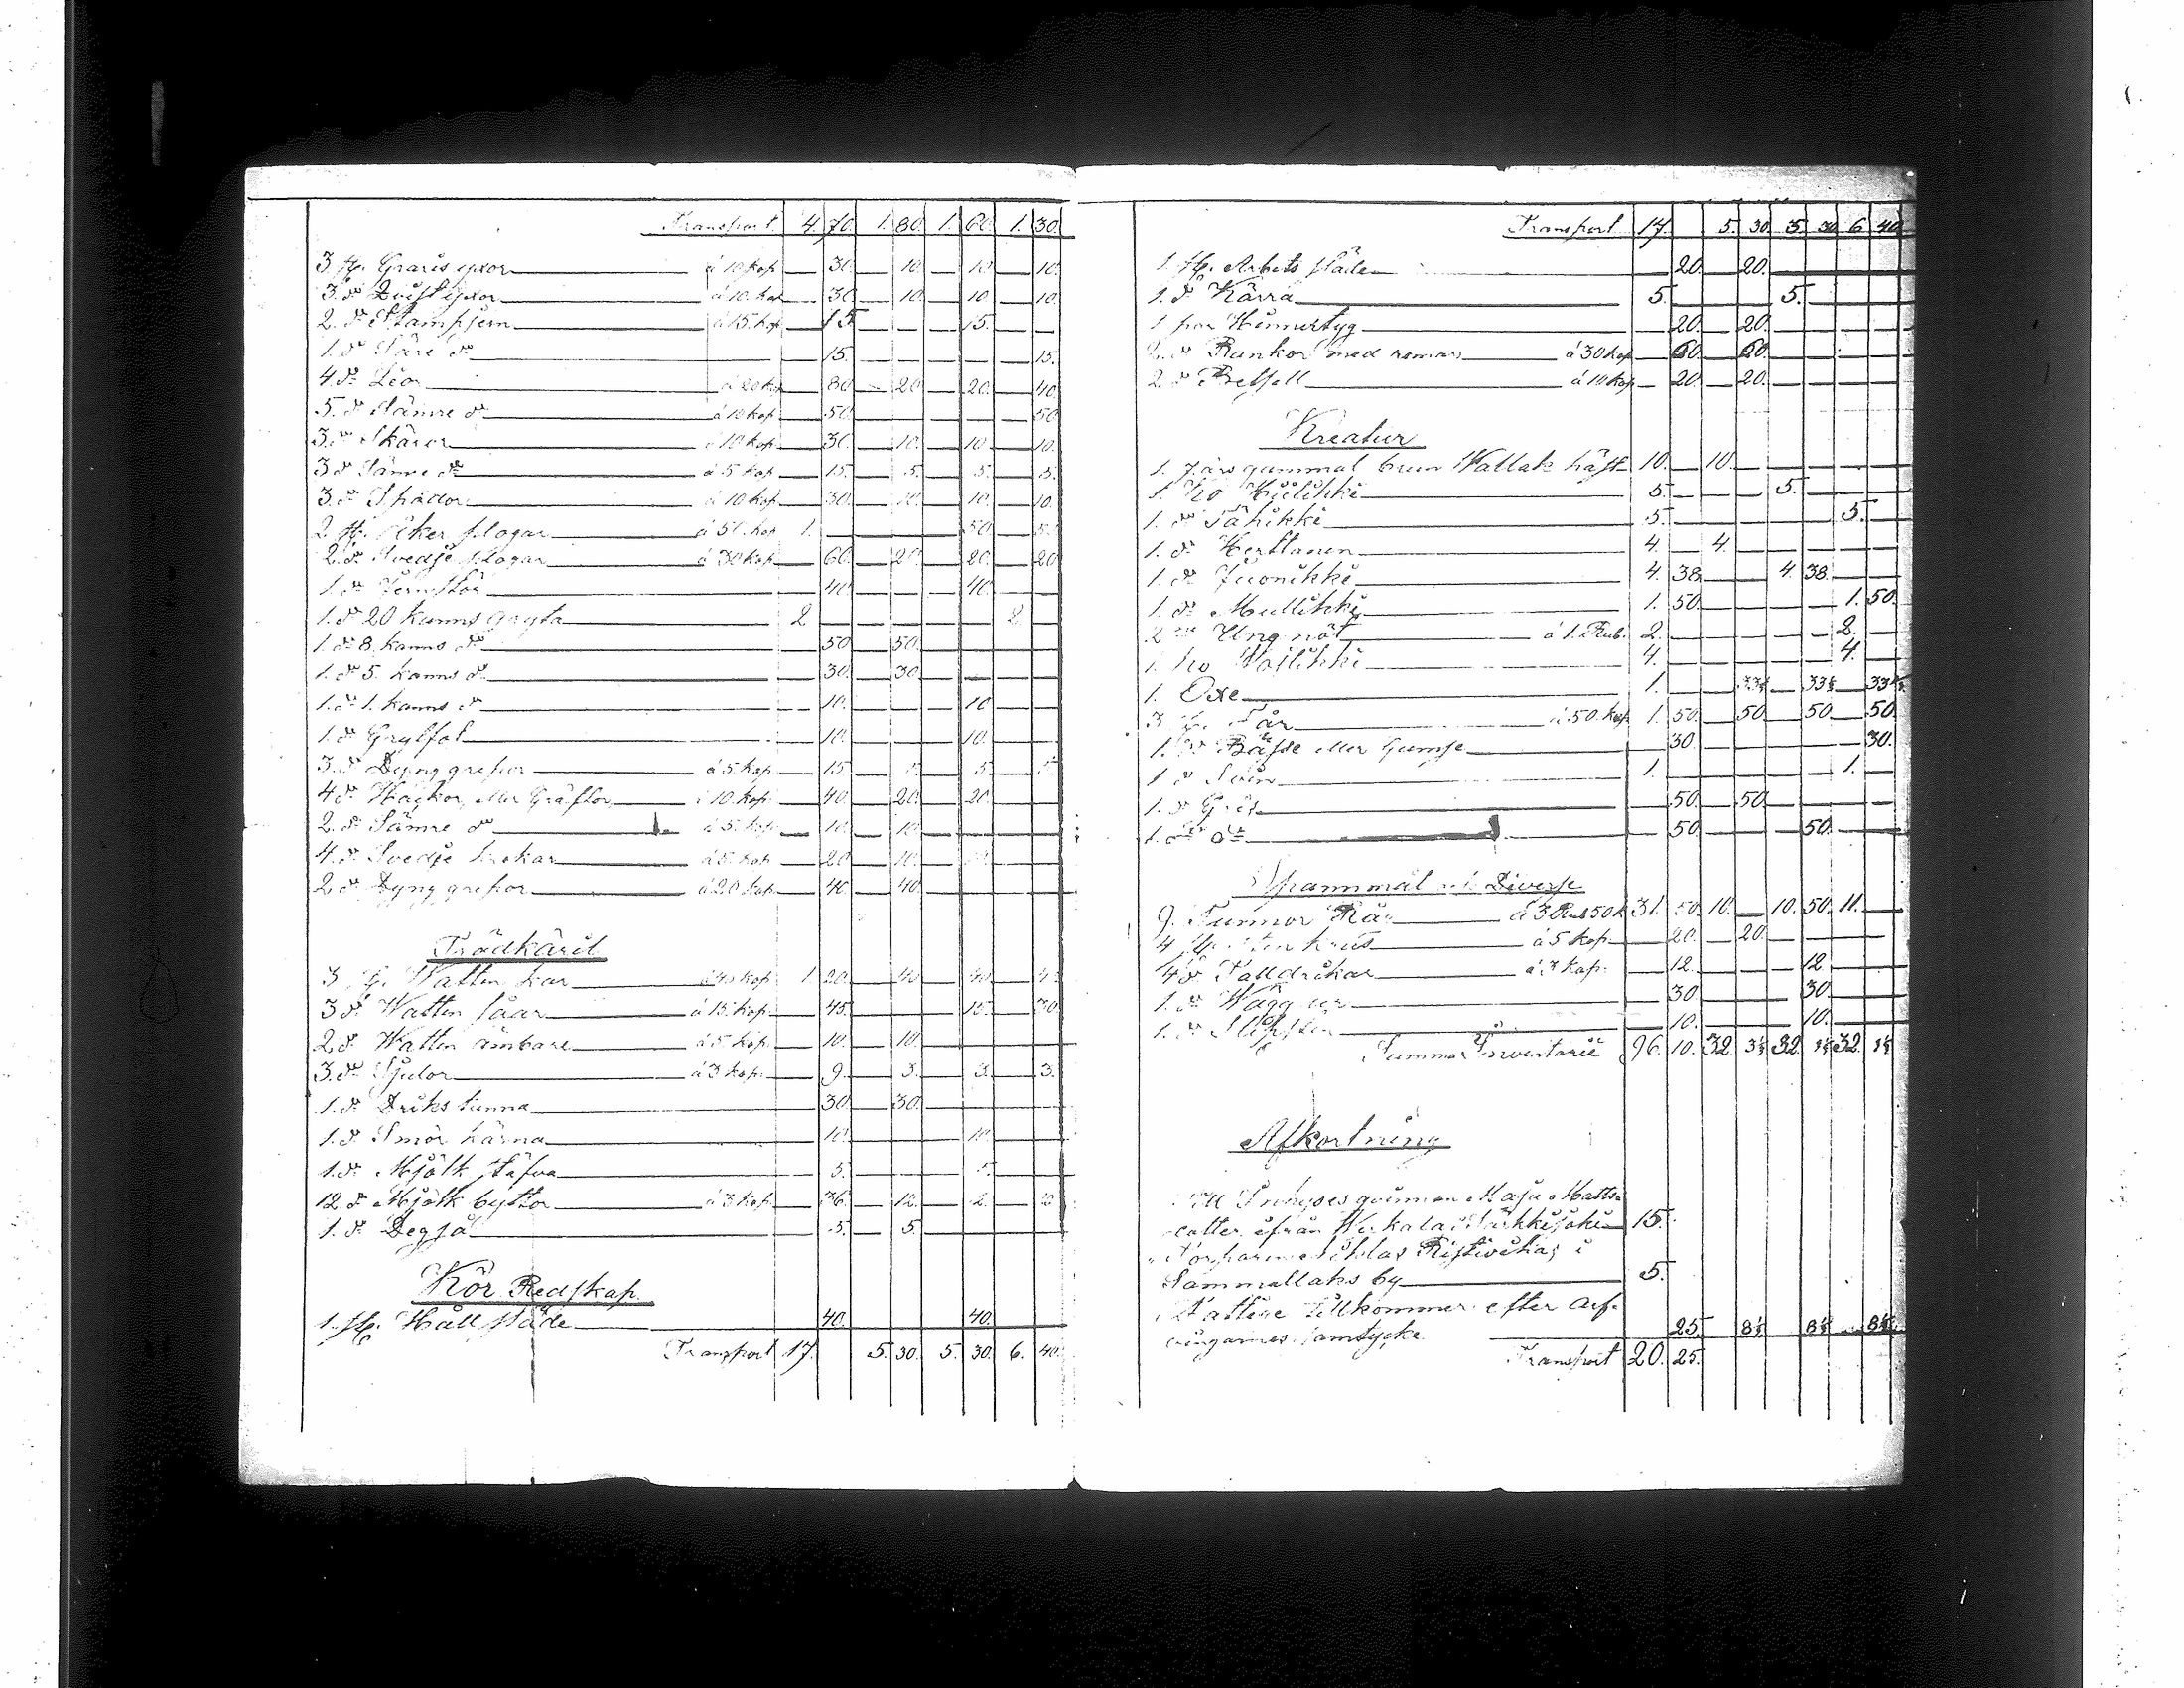 Transport 4. 70. 1. 80. 1. 60. 1. 30.
3 st. Grans yxor á 10 kop. 30. 10. 10. 10.
3. do Qvist yxor á 10. kop 30 10. 10. 10.
2. do Stampjern á 15. kop 15. 15.
1. do Säre do 15. 15.
4. do Lear á 20 kop 80. 20. 20. 40.
5. do Sämre do á 10 kop. 50. 50
3. do Skäror á 10 kop. 30. 10. 10. 10.
3 do Sämre do á 5 kop. 15. 5. 5. 5.
3. do Spador á 10 kop. 30. 10. 10. 10.
2 st. Åker plogar á 50. kop 1. 50. 5.
2. do Svedje plogar á 30 kop. 60. 20. 20. 20
1. do Jernstör 40. 40.
1. do 20 kanns gryta 2 2
1. do 8. kanns do 50. 50.
1. do 5. kanns do 30. 30
1. do 1. kanns do 10. 10
1. do Grylfot 10. 10.
3. do Dyng grepor á 5 kop. 15. 5. 5. 5.
4 do Hackor, eller Gräftor á 10. kop. 40. 20. 20.
2. do Sämre do á 5. kop. 10. 10.
4. do Svedje krokar á 5. kop. 20 10.
2. do Dyng grepor á 20 kop. 40. 40.
Trädkäril
3 st. Watten kar á 40 kop. 1 20. 40 40. 4
3 do Watten såar á 15. kop. 45. 15. 30
2. do Watten ämbare á 5 kop. 10. 10.
3. do Bjudor á 3 kop. 9. 3. 3. 3.
1. do Driks tunna 30 30.
1. do Smör kärna 10. 10
1. do Mjölk stäfva 5. 5.
12. do Mjölk byttor á 3 kop. 36. 12. 12. 12
1. do Degså 5. 5.
Kör Redskap
1. st. Håll släde 40. 40.
Transport 17. 5. 30. 5. 30. 6. 40.
Transport 17. 5. 30. 5. 30 6. 40
1. st. Arbets släde 20. 20.
1. do Kärra 5. 5.
1 par Hinnertyg 20. 20.
2. do Rankor med remar á 30 kop 60. 60.
2. do Betsell á 10 kop 20. 20.
Kreatur
1. 7. års gammal brun Wallak häst 10. 10.
1. ko Hülikki 5. 5.
1. do Tähikki 5. 5.
1. do Herttanen 4. 4.
1. do Juonikki 4. 38. 4. 38.
1. do Mullikki 1. 50. 1. 50.
2 do Ung nöt á 1. Rub. 2. 2.
1. ko 4. 4.
1. Oxe 1. 33⅓ 33⅓ 33⅓
3 st. Får á 50. kop 1. 50. 50 50 50.
1. do Bässe eller Gumse 30. 30.
1 do Svin 1. 1.
1. do Gris 50. 50.
1. do do 50. 50.
Spannmål och Diverse
9. Tunnor Råg á 3 Rub 50 k 31. 50. 10. 10. 50. 11.
4 st. Sten krus á 5 kop. 20. 20.
4 do Talldrikar á 3 kop. 12. 12.
1. do Wägg ur 30 30
1. do Slipsten 10. 10.
Summa Inventarie 96. 10. 32. 3⅓ 32. 3⅓ 32. 3⅓
Afkortning
Till Inhyses qvinnan Maja Matts-
dotter ifrån 15.
Torparen Niklas i
Sammallaks by 5.
Fattige tillkommer efter arf-
vingarnes samtycke 25. 8⅓ 8⅓ 8⅓
Transport 20. 25.